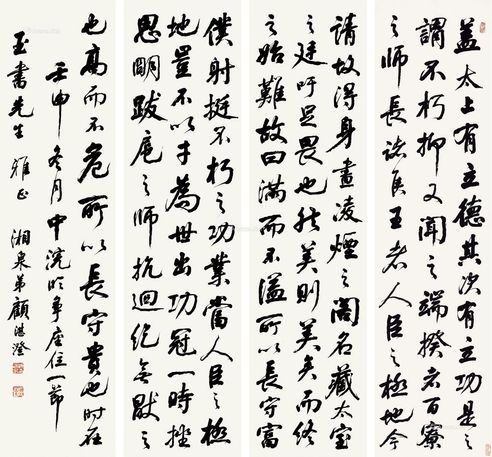 蓋太上有立德其次有立功是之
謂不朽抑又聞之端揆者百寮
之師長諸侯王者人臣之極地今
請故得身畫凌煙之閣名藏太室
之廷吁足畏也然美則美矣而終
之始難故曰滿而不溢所以長守富
僕射挺不朽之功業當人臣之極
地豈不以才為世出功冠一時挫
思明跋扈之師抗迴紇無厭之
也高而不危所以長守貴也時在
壬申冬月中浣臨爭座位一節
玉書先生雅正 湘泉弟顧澄